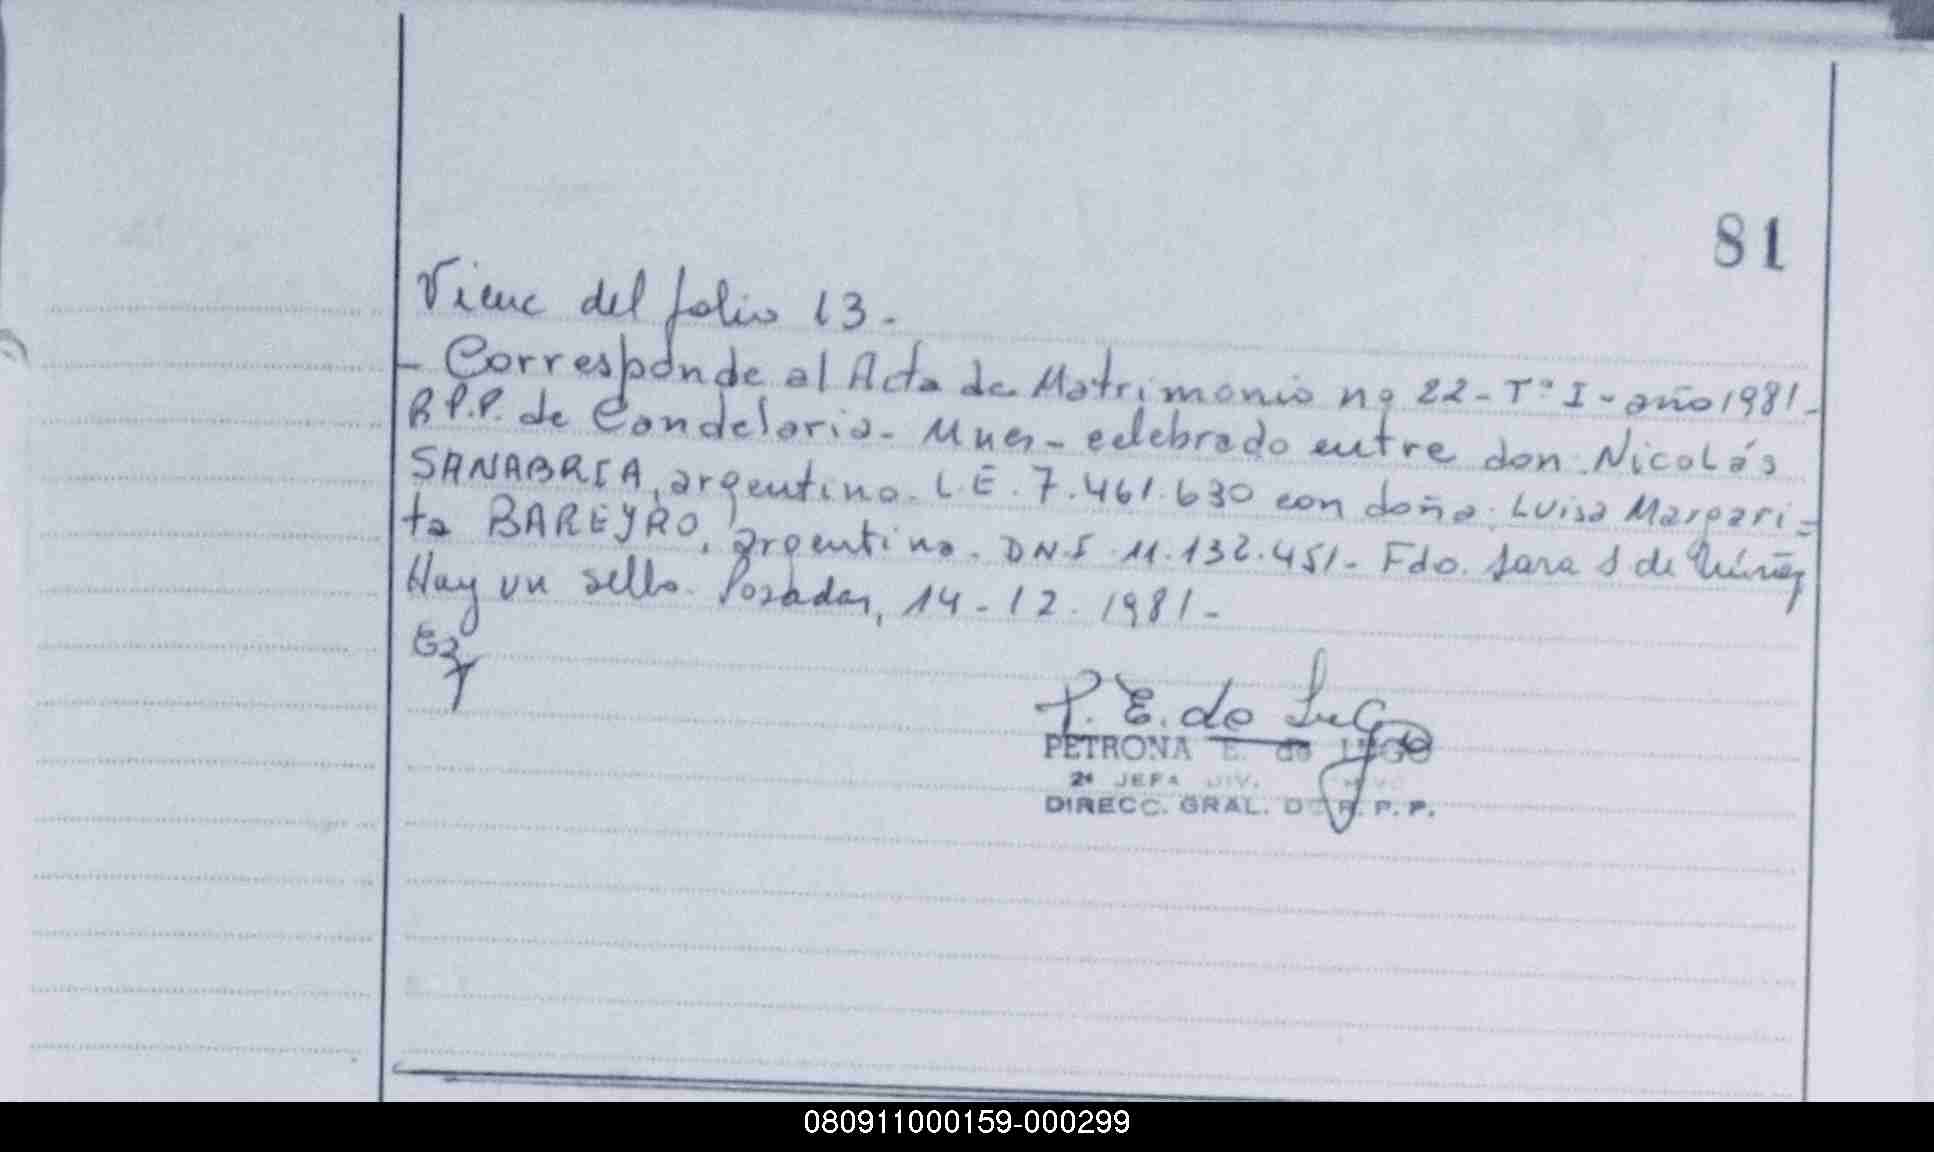 81
Viene del folio 13.
- Corresponde al Acta de Matrimonio nº 22 - Tº I - año 1981 -
R.P.P. de Candelaria - Mnes - celebrado entre don: Nicolás
SANABRIA, argentino. L.E. 7.461.630 con doña: Luisa Margari=
ta BAREYRO, argentina. DNI 11.132.451 - Fdo. Sara S de Núñez
Hay un sello. Posadas, 14 - 12 - 1981 -
P. E. de Lugo
PETRONA E. de LUGO
2ª JEFA DIV.
DIRECC. GRAL. DE R. P. P.
080911000159-000299